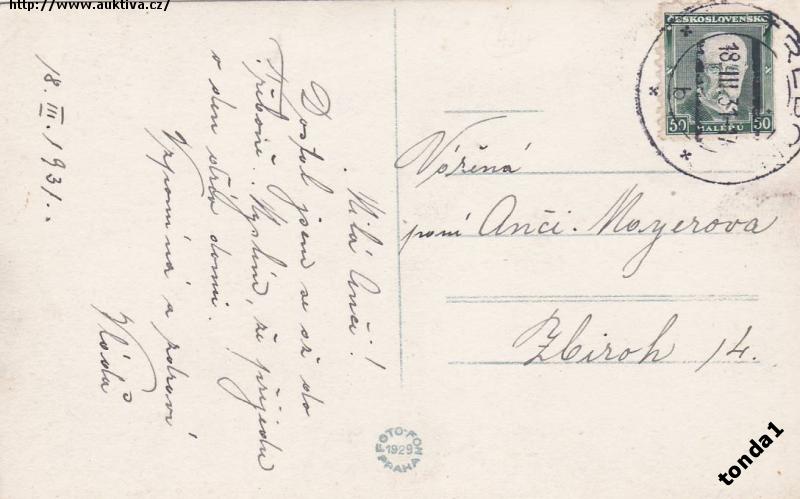 http://www.auktiva.cz/
18. III. 1931.
Milá Anči!
Dostal jsem se až do
Třeboně. Myslím, že přijedu
v den doma.
Vzpomíná a zdraví
Vláďa
ČESKOSLOVENSKO
50 HALÉŘŮ 50
TŘEBOŇ
18 III 31
b
Vážená
paní Anči. Mayerova
Zbiroh 14.
FOTO-FON
1929
PRAHA
tonda1